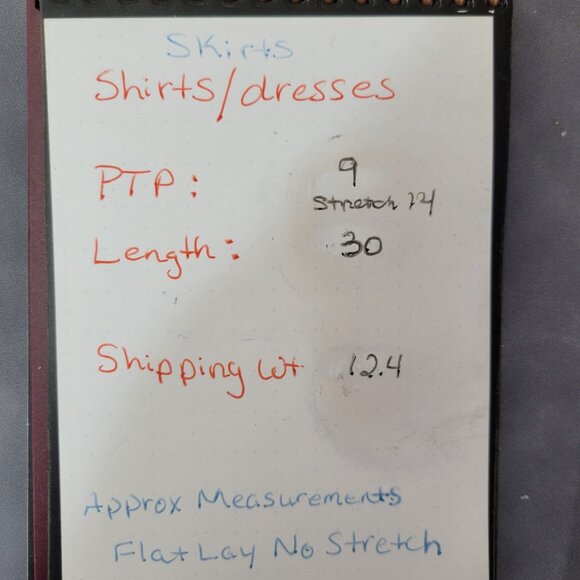 Skirts
Shirts/dresses
PTP: 9
Stretch 14
Length: 30
Shipping wt 12.4
Approx Measurements
Flat Lay No Stretch